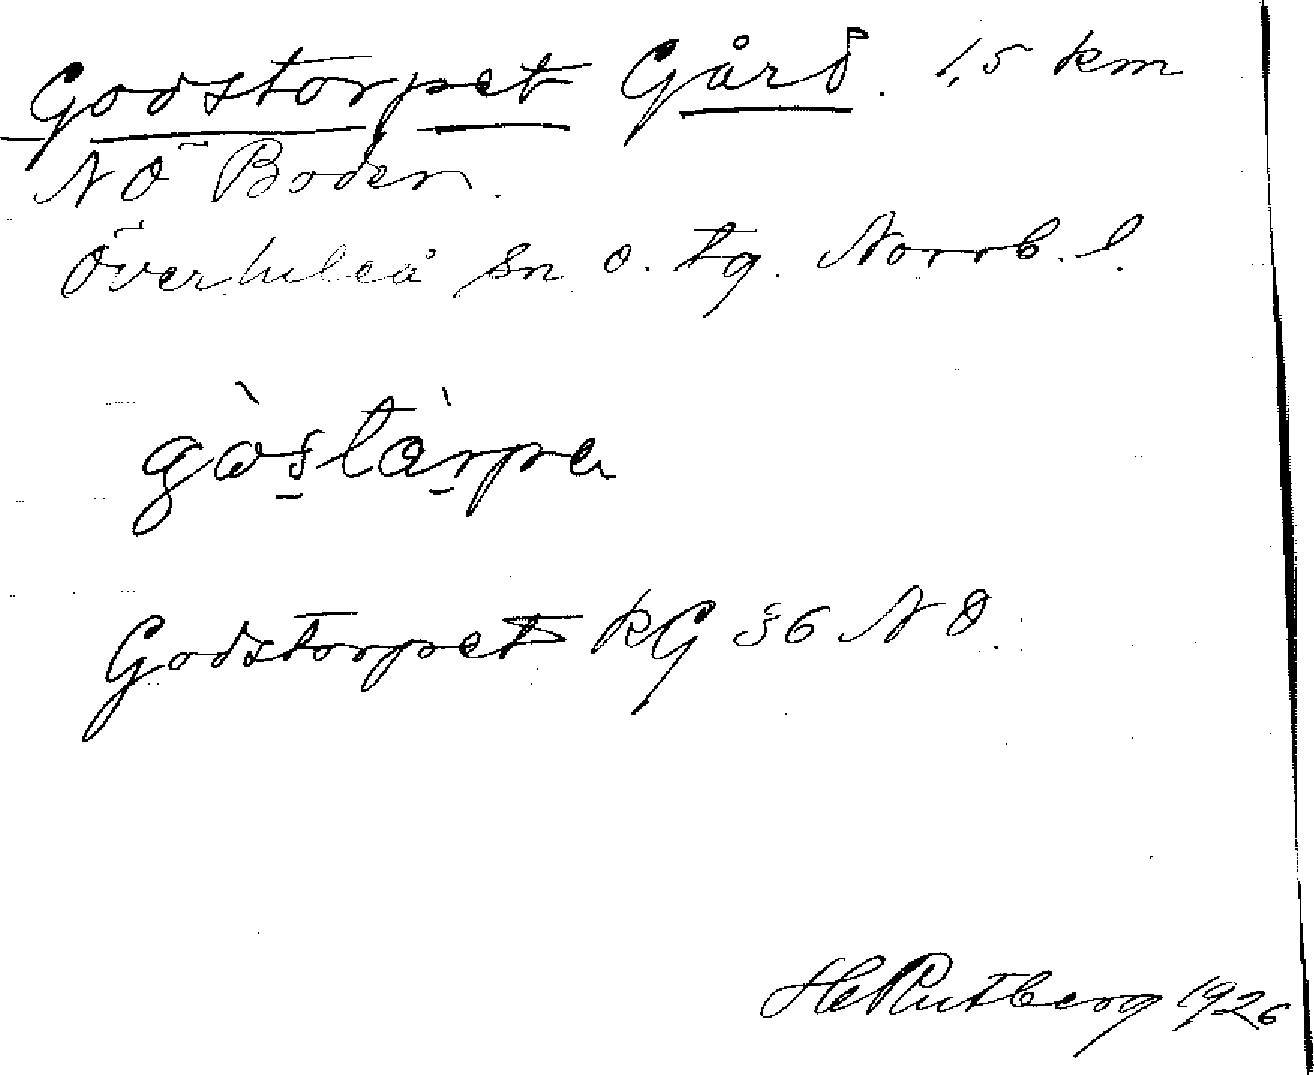 Godstorpet Gård. 1,5 km
NÖ Boden.
Överluleå sn o. tg. Norrb. l.
gòstàrpe
Godstorpet KG 36 NO.
HeRutberg 1926